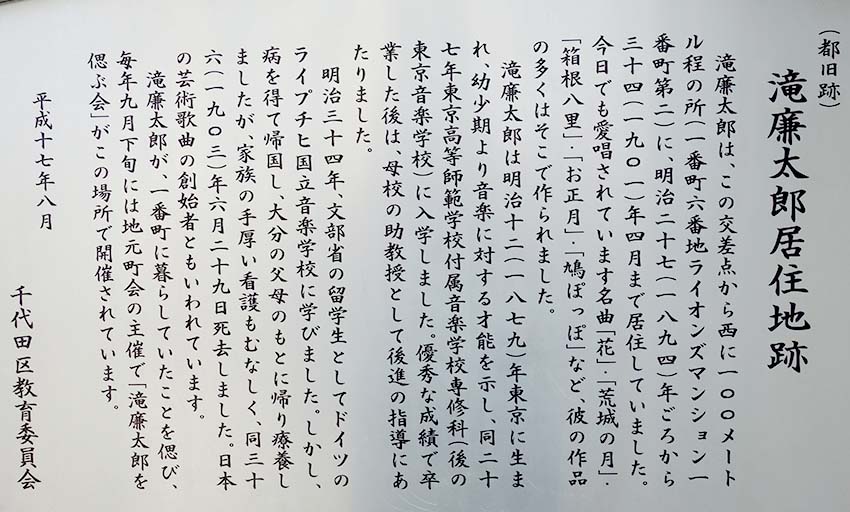 （都旧跡）
滝廉太郎居住地跡
滝廉太郎は、この交差点から西に一〇〇メート
ル程の所（一番町六番地ライオンズマンション一
番町第二）に、明治二十七（一八九四）年ごろから
三十四（一九〇一）年四月まで居住していました。
今日でも愛唱されています名曲「花」「荒城の月」・
「箱根八里」「お正月」・「鳩ぽっぽ」など、彼の作品
の多くはそこで作られました。
滝廉太郎は明治十二（一八七九）年東京に生ま
れ、幼少期より音楽に対する才能を示し、同二十
七年東京高等師範学校付属音楽学校専修科（後の
東京音楽学校）に入学しました。優秀な成績で卒
業した後は、母校の助教授として後進の指導にあ
たりました。
明治三十四年、文部省の留学生としてドイツの
ライプチヒ国立音楽学校に学びました。しかし、
病を得て帰国し、大分の父母のもとに帰り療養し
ましたが、家族の手厚い看護もむなしく、同三十
六（一九〇三）年六月二十九日死去しました。日本
の芸術歌曲の創始者ともいわれています。
滝廉太郎が、一番町に暮らしていたことを偲び、
毎年九月下旬には地元町会の主催で「滝廉太郎を
偲ぶ会」がこの場所で開催されています。
平成十七年八月
千代田区教育委員会